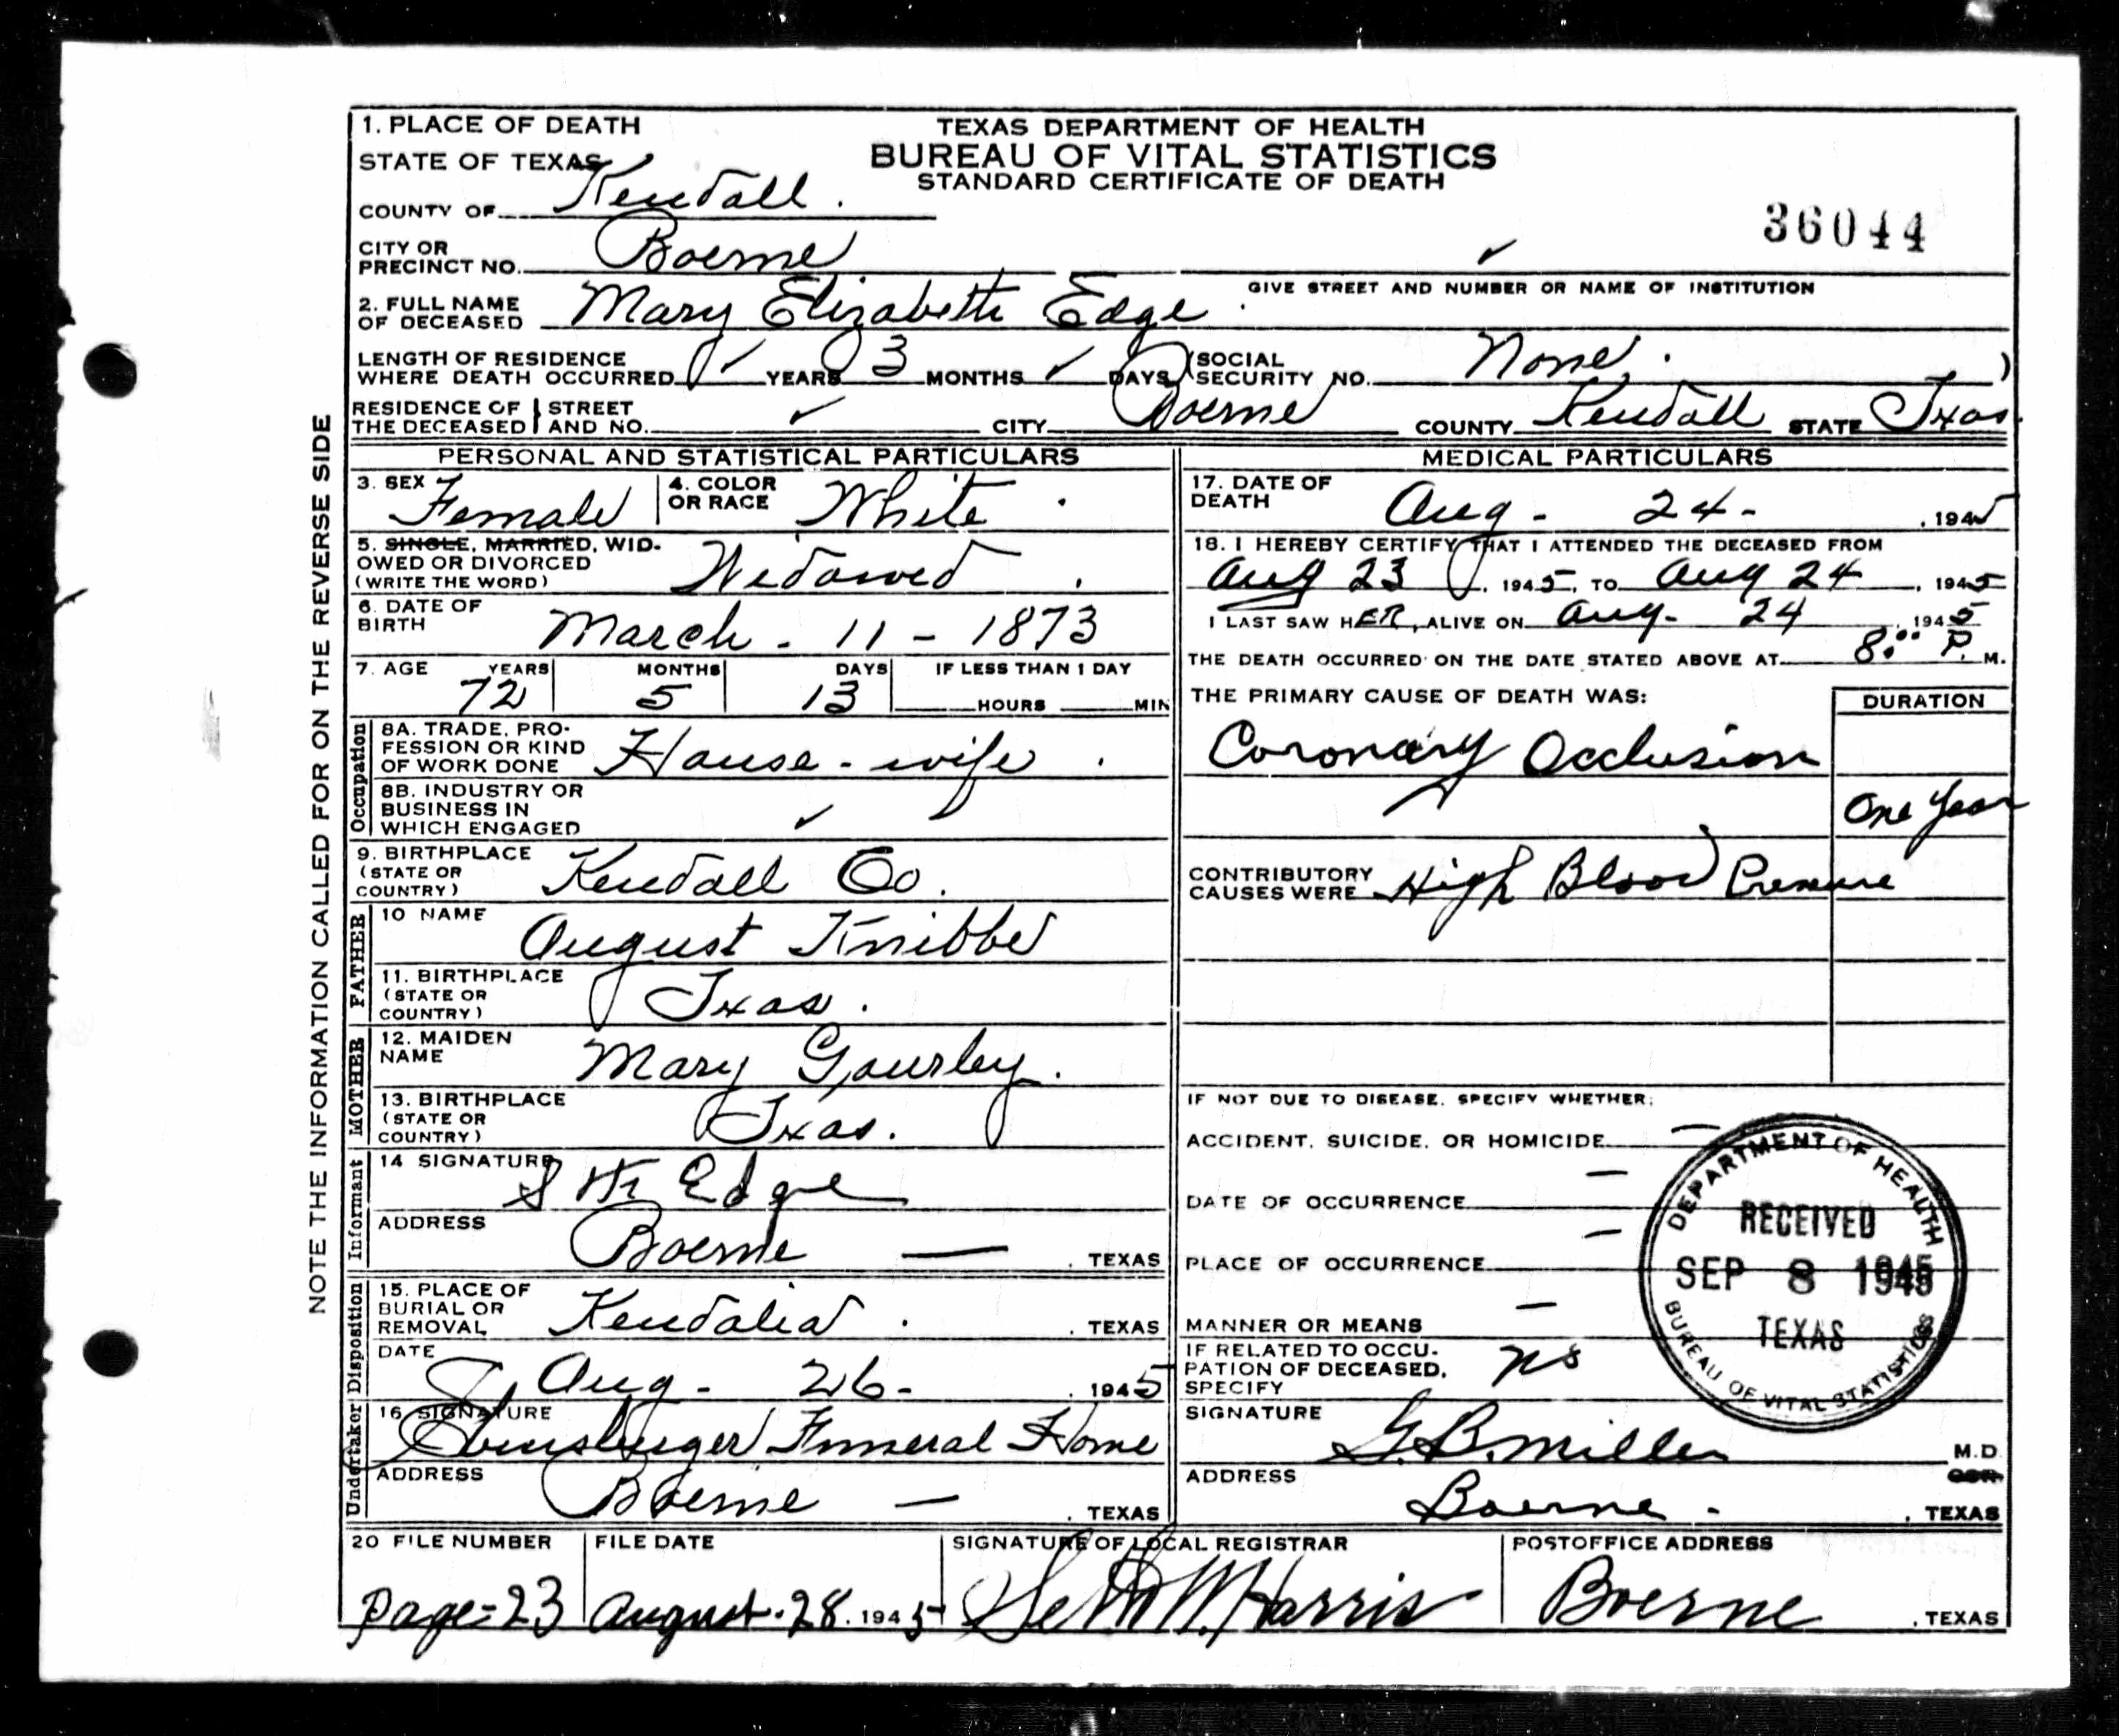 NOTE THE INFORMATION CALLED FOR ON THE REVERSE SIDE
TEXAS DEPARTMENT OF HEALTH
BUREAU OF VITAL STATISTICS
STANDARD CERTIFICATE OF DEATH
36044
1. PLACE OF DEATH
STATE OF TEXAS
COUNTY OF Kendall.
CITY OR PRECINCT NO. Boerne ✓
GIVE STREET AND NUMBER OR NAME OF INSTITUTION
2. FULL NAME OF DECEASED Mary Elizabeth Edge
LENGTH OF RESIDENCE WHERE DEATH OCCURRED ✓ YEARS 3 MONTHS ✓ DAYS (SOCIAL SECURITY NO. None. )
RESIDENCE OF THE DECEASED STREET AND NO. ✓ CITY Boerne COUNTY Kendall STATE Txas.
PERSONAL AND STATISTICAL PARTICULARS
3. SEX Female 4. COLOR OR RACE White.
5. SINGLE, MARRIED, WIDOWED OR DIVORCED (WRITE THE WORD) Widowed.
6. DATE OF BIRTH March - 11 - 1873
7. AGE YEARS 72 MONTHS 5 DAYS 13 IF LESS THAN 1 DAY HOURS MIN
Occupation
8A. TRADE, PROFESSION OR KIND OF WORK DONE House-wife.
8B. INDUSTRY OR BUSINESS IN WHICH ENGAGED ✓
9. BIRTHPLACE (STATE OR COUNTRY) Kendall Co.
FATHER
10 NAME August Knibbe
11. BIRTHPLACE (STATE OR COUNTRY) Txas.
MOTHER
12. MAIDEN NAME Mary Gourley.
13. BIRTHPLACE (STATE OR COUNTRY) Txas.
Informant
14 SIGNATURE Edge
ADDRESS Boerne — , TEXAS
Disposition
15. PLACE OF BURIAL OR REMOVAL Kendalia. , TEXAS
DATE Aug - 26 - , 1945
Undertaker
16 SIGNATURE Funeral Home
ADDRESS Boerne — , TEXAS
MEDICAL PARTICULARS
17. DATE OF DEATH Aug - 24 - , 1945
18. I HEREBY CERTIFY THAT I ATTENDED THE DECEASED FROM
Aug 23, 1945, TO Aug 24, 1945
I LAST SAW HER, ALIVE ON Aug - 24, 1945
THE DEATH OCCURRED ON THE DATE STATED ABOVE AT 8:00 P. M.
THE PRIMARY CAUSE OF DEATH WAS: DURATION
Coronary Occlusion
One Year
CONTRIBUTORY CAUSES WERE High Blood Pressure
IF NOT DUE TO DISEASE, SPECIFY WHETHER:
ACCIDENT, SUICIDE, OR HOMICIDE —
DATE OF OCCURRENCE —
PLACE OF OCCURRENCE —
MANNER OR MEANS —
IF RELATED TO OCCUPATION OF DECEASED, SPECIFY No
DEPARTMENT OF HEALTH
RECEIVED
SEP 8 1945
TEXAS
BUREAU OF VITAL STATISTICS
SIGNATURE G.B. Miller M.D.
ADDRESS Boerne - , TEXAS
20 FILE NUMBER Page=23
FILE DATE August-28, 1945
SIGNATURE OF LOCAL REGISTRAR W. Harris
POSTOFFICE ADDRESS Boerne , TEXAS